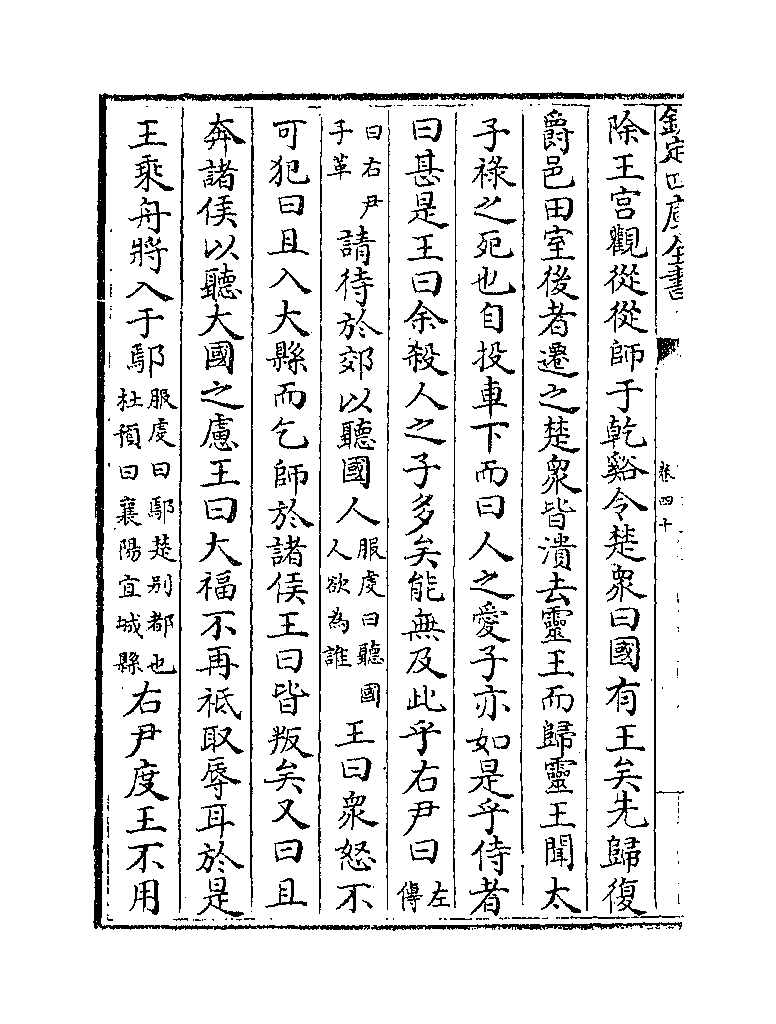 欽定四庫全書
卷四十
除王宫觀從從師于乾谿令楚衆曰國有王矣先歸復
爵邑田室後者遷之楚衆皆潰去靈王而歸靈王聞太
子禄之死也自投車下而曰人之愛子亦如是乎侍者
曰甚是王曰余殺人之子多矣能無及此乎右尹曰左傳
曰右尹子革請待於郊以聽國人服虔曰聽國人欲為誰王曰衆怒不
可犯曰且入大縣而乞師於諸侯王曰皆叛矣又曰且
奔諸侯以聽大國之慮王曰大福不再祗取辱耳於是
王乘舟將入于鄢服虔曰鄢楚别都也杜預曰襄陽宜城縣右尹度王不用